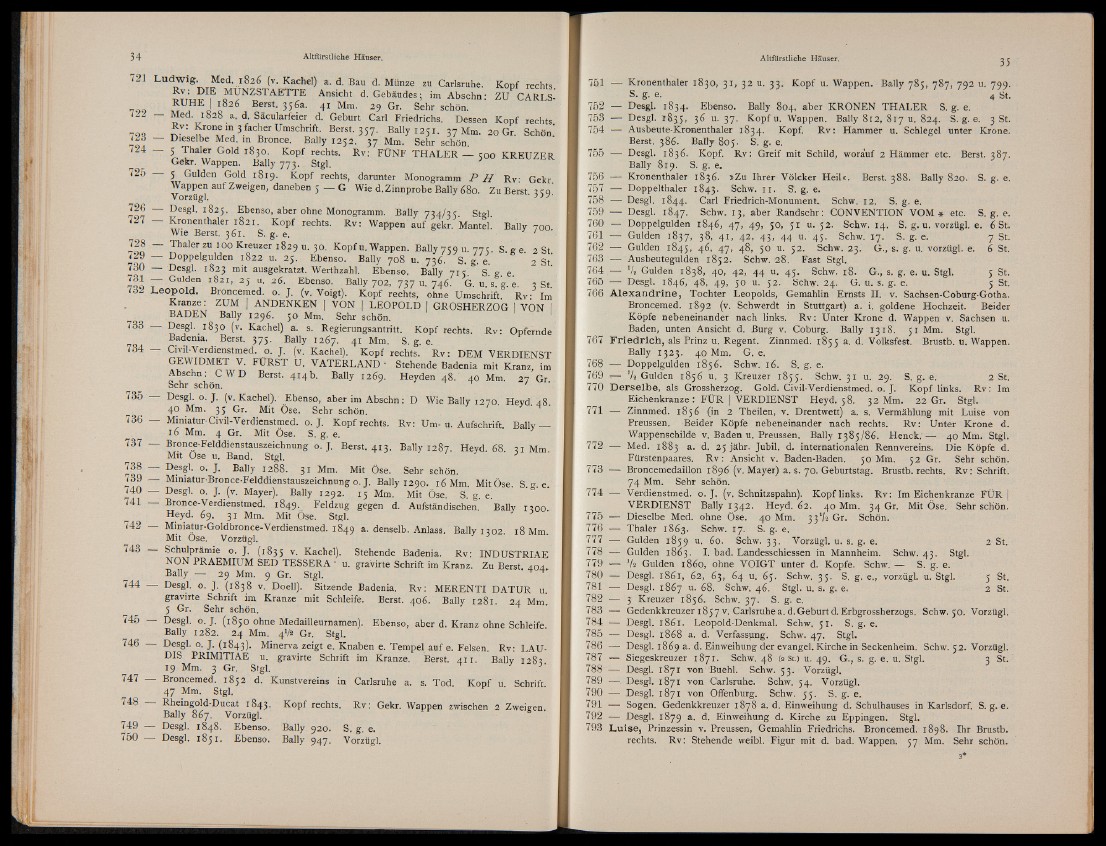 34 Altfürstliche Häuser.
721 Ludwig. Med. 1826 (v. Kachel) a. d. Bau d. Münze zu Carlsruhe. Kopf rechts.
Rv: DIE MÜNZSTAETTE Ansicht d. Gebäudes; im Abschn: ZU CARLS-
RUHE | 1826 Berst. 356a. 41 Mm. 29 Gr. Sehr schön.
722 — Med. 1828 a. d. Säcularfeier d. Geburt Carl Friedrichs. Dessen Kopf rechts.
Rv: Krone in 3 facher Umschrift. Berst. 357. Bally 1251. 37 Mm. 20 Gr. Schön.
723 — Dieselbe Med. in Bronce. Bally 1252. 37 Mm. Sehr schön.
724 — 5 Thaler Gold 1830. Kopf rechts. Rv: FÜNF THALER — 500 KREUZER
Gekr. Wappen. Bally 773. Stgl.
725 — 5 Gulden Gold 1819. Kopf rechts, darunter Monogramm P H Rv: Gekr.
Wappen auf Zweigen, daneben 5 — G Wie d. Zinnprobe Bally 680. Zu Berst. 359.
Vorzügl.
726 — Desgl. 1825. Ebenso, aber ohne Monogramm. Bally 734/35. Stgl.
727 — Kronenthaler 1821. Kopf rechts. Rv: Wappen auf gekr. Mantel. Bally 700.
Wie Berst. 361. S. g. e.
728 — Thaler zu 100 Kreuzer 1829 u. 30. Kopf u. Wappen. Bally 759 u. 775. S. g e. 2 St.
729 — Doppelgulden 1822 u. 25. Ebenso. Bally 708 u. 736. S. g. e. 2 St.
730 — Desgl. 1823 mit ausgekratzt. Werthzahl. Ebenso. Bally 715. S. g. e.
731 — Gulden 1821, 25 u. 26. Ebenso. Bally 702, 737 u. 746. G. u. s. g. e. 3 St.
732 Leopold. Broncemed. o. J. (v. Voigt). Kopf rechts, ohne Umschrift. Rv: Im
Kranze: ZUM | ANDENKEN | VON | LEOPOLD | GROSHERZOG | VON |
BADEN Bally 1296. 50 Mm. Sehr schön.
733 — Desgl. 1830 (v. Kachel) a. s. Regierungsantritt. Kopf rechts. Rv: Opfernde
Badenia. Berst. 375. Bally 1267. 41 Mm. S. g. e.
734 — Civil-Verdienstmed. o. J. (v. Kachel). Kopf rechts. Rv: DEM VERDIENST
GEWIDMET V. FÜRST U. VATERLAND · Stehende Badenia mit Kranz, im
Abschn: C W D Berst. 414b. Bally 1269. Heyden 48. 40 Mm. 27 Gr.
Sehr schön.
735 — Desgl. o. J. (v. Kachel). Ebenso, aber im Abschn: D Wie Bally 1270. Heyd. 48.
40 Mm. 35 Gr. Mit Öse. Sehr schön.
736 — Miniatur-Civil-Verdienstmed. o. J. Kopf rechts. Rv: Um- u. Aufschrift. Bally —
16 Mm. 4 Gr. Mit Öse. S. g. e.
737 — Bronce-Felddienstauszeichnung o. J. Berst. 413. Bally 1287. Heyd. 68. 31 Mm.
Mit Öse u. Band. Stgl.
738 — Desgl. o. J. Bally 1288. 31 Mm. Mit Öse. Sehr schön.
739 — Miniatur-Bronce-Felddienstauszeichnung o. J. Bally 1290. 16 Mm. Mit Öse. S. g. e.
740 — Desgl. o. J. (v. Mayer). Bally 1292. 15 Mm. Mit Öse. S. g. e.
741 — Bronce-Verdienstmed. 1849. Feldzug gegen d. Aufständischen. Bally 1300.
Heyd. 69. 31 Mm. Mit Öse. Stgl.
742 — Miniatur-Goldbronce-Verdienstmed. 1849 a. denselb. Anlass. Bally 1302. 18 Mm.
Mit Öse. Vorzügl.
743 — Schulprämie o. J. (1835 v. Kachel). Stehende Badenia. Rv: INDUSTRIAE
NON PRAEMIUM SED TESSERA · u. gravirte Schrift im Kranz. Zu Berst. 404.
Bally — 29 Mm. 9 Gr. Stgl.
744 — Desgl. o. J. (1838 v. Doell). Sitzende Badenia. Rv: MERENTI DATUR u.
gravirte Schrift im Kranze mit Schleife. Berst. 406. Bally 1281. 24 Mm.
5 Gr. Sehr schön.
745 — Desgl. o. J. (1850 ohne Medailleurnamen). Ebenso, aber d. Kranz ohne Schleife.
Bally 1282. 24 Mm. 4½ Gr. Stgl.
746 — Desgl. o. J. (1843). Minerva zeigt e. Knaben e. Tempel auf e. Felsen. Rv: LAU-
DIS PRIMITIAE u. gravirte Schrift im Kranze. Berst. 411. Bally 1283.
19 Mm. 3 Gr. Stgl.
747 — Broncemed. 1852 d. Kunstvereins in Carlsruhe a. s. Tod. Kopf u. Schrift.
47 Mm. Stgl.
748 — Rheingold-Ducat 1843. Kopf rechts. Rv: Gekr. Wappen zwischen 2 Zweigen.
Bally 867. Vorzügl.
749 — Desgl. 1848. Ebenso. Bally 920. S. g. e.
750 — Desgl. 1851. Ebenso. Bally 947. Vorzügl.
Altfürstliche Häuser. 35
751 — Kronenthaler 1830, 31, 32 u. 33. Kopf u. Wappen. Bally 785, 787, 792 u. 799.
S. g. e. 4 St.
752 — Desgl. 1834. Ebenso. Bally 804, aber KRONEN THALER S. g. e.
753 — Desgl. 1835, 36 u. 37. Kopf u. Wappen. Bally 812, 817 u. 824. S. g. e. 3 St.
754 — Ausbeute-Kronenthaler 1834. Kopf. Rv: Hammer u. Schlegel unter Krone.
Berst. 386. Bally 805. S. g. e.
755 — Desgl. 1836. Kopf. Rv: Greif mit Schild, worauf 2 Hämmer etc. Berst. 387.
Bally 819. S. g. e.
756 — Kronenthaler 1836. »Zu Ihrer Völcker Heil«. Berst. 388. Bally 820. S. g. e.
757 — Doppelthaler 1843. Schw. 11. S. g. e.
758 — Desgl. 1844. Carl Friedrich-Monument. Schw. 12. S. g. e.
759 — Desgl. 1847. Schw. 13, aber Randschr: CONVENTION VOM * etc. S. g. e.
760 — Doppelgulden 1846, 47, 49, 50, 51 u. 52. Schw. 14. S. g. u. vorzügl. e. 6 St.
761 — Gulden 1837, 38, 41, 42, 43, 44 u. 45. Schw. 17. S. g. e. 7 St.
762 — Gulden 1845, 46, 47, 48, 50 u. 52. Schw. 23. G., s. g. u. vorzügl. e. 6 St.
763 — Ausbeutegulden 1852. Schw. 28. Fast Stgl.
764 — ½ Gulden 1838, 40, 42, 44 u. 45. Schw. 18. G., s. g. e. u. Stgl. 5 St.
765 — Desgl. 1846, 48, 49, 50 u. 52. Schw. 24. G. u. s. g. e. 5 St.
766 Alexandrine, Tochter Leopolds, Gemahlin Ernsts II. v. Sachsen-Coburg-Gotha.
Broncemed. 1892 (v. Schwerdt in Stuttgart) a. i. goldene Hochzeit. Beider
Köpfe nebeneinander nach links. Rv: Unter Krone d. Wappen v. Sachsen u.
Baden, unten Ansicht d. Burg v. Coburg. Bally 1318. 51 Mm. Stgl.
767 Friedrich, als Prinz u. Regent. Zinnmed. 1855 a. d. Volksfest. Brustb. u. Wappen.
Bally 1323. 40 Mm. G. e.
768 — Doppelgulden 1856. Schw. 16. S. g. e.
769 — ½ Gulden 1856 u. 3 Kreuzer 1855. Schw. 31 u. 29. S. g. e. 2 St.
770 Derselbe, als Grossherzog. Gold. Civil-Verdienstmed. o. J. Kopf links. Rv: Im
Eichenkranze: FÜR | VERDIENST Heyd. 58. 32 Mm. 22 Gr. Stgl.
771 — Zinnmed. 1856 (in 2 Theilen, v. Drentwett) a. s. Vermählung mit Luise von
Preussen. Beider Köpfe nebeneinander nach rechts. Rv: Unter Krone d.
Wappenschilde v. Baden u. Preussen. Bally 1385/86. Henck. — 40 Mm. Stgl.
772 — Med. 1883 a. d. 25 jähr. Jubil. d. internationalen Rennvereins. Die Köpfe d.
Fürstenpaares. Rv: Ansicht v. Baden-Baden. 50 Mm. 52 Gr. Sehr schön.
773 — Broncemedaillon 1896 (v. Mayer) a. s. 70. Geburtstag. Brustb. rechts. Rv: Schrift.
74 Mm. Sehr schön.
774 — Verdienstmed. o. J. (v. Schnitzspahn). Kopf links. Rv: Im Eichenkranze FÜR |
VERDIENST Bally 1342. Heyd. 62. 40 Mm. 34 Gr. Mit Öse. Sehr schön.
775 — Dieselbe Med. ohne Öse. 40 Mm. 33½ Gr. Schön.
776 — Thaler 1863. Schw. 17. S. g. e.
777 — Gulden 1859 u. 60. Schw. 33. Vorzügl. u. s. g. e. 2 St.
778 — Gulden 1863. I. bad. Landesschiessen in Mannheim. Schw. 43. Stgl.
779 — ½ Gulden 1860, ohne VOIGT unter d. Kopfe. Schw. — S. g. e.
780 — Desgl. 1861, 62, 63, 64 u. 65. Schw. 35. S. g. e., vorzügl. u. Stgl. 5 St.
781 — Desgl. 1867 u. 68. Schw. 46. Stgl. u. s. g. e. 2 St.
782 — 3 Kreuzer 1856. Schw. 37. S. g. e.
783 — Gedenkkreuzer 1857 v. Carlsruhe a. d. Geburt d. Erbgrossherzogs. Schw. 50. Vorzügl.
784 — Desgl. 1861. Leopold-Denkmal. Schw. 51. S. g. e.
785 — Desgl. 1868 a. d. Verfassung. Schw. 47. Stgl.
786 — Desgl. 1869 a. d. Einweihung der evangel. Kirche in Seckenheim. Schw. 52. Vorzügl.
787 — Siegeskreuzer 1871. Schw. 48 (2 St.) u. 49. G., s. g. e. u. Stgl. 3 St.
788 — Desgl. 1871 von Buehl. Schw. 53. Vorzügl.
789 — Desgl. 1871 von Carlsruhe. Schw. 54. Vorzügl.
790 — Desgl. 1871 von Offenburg. Schw. 55. S. g. e.
791 — Sogen. Gedenkkreuzer 1878 a. d. Einweihung d. Schulhauses in Karlsdorf. S. g. e.
792 — Desgl. 1879 a. d. Einweihung d. Kirche zu Eppingen. Stgl.
793 Luise, Prinzessin v. Preussen, Gemahlin Friedrichs. Broncemed. 1898. Ihr Brustb.
rechts. Rv: Stehende weibl. Figur mit d. bad. Wappen. 57 Mm. Sehr schön.
3*